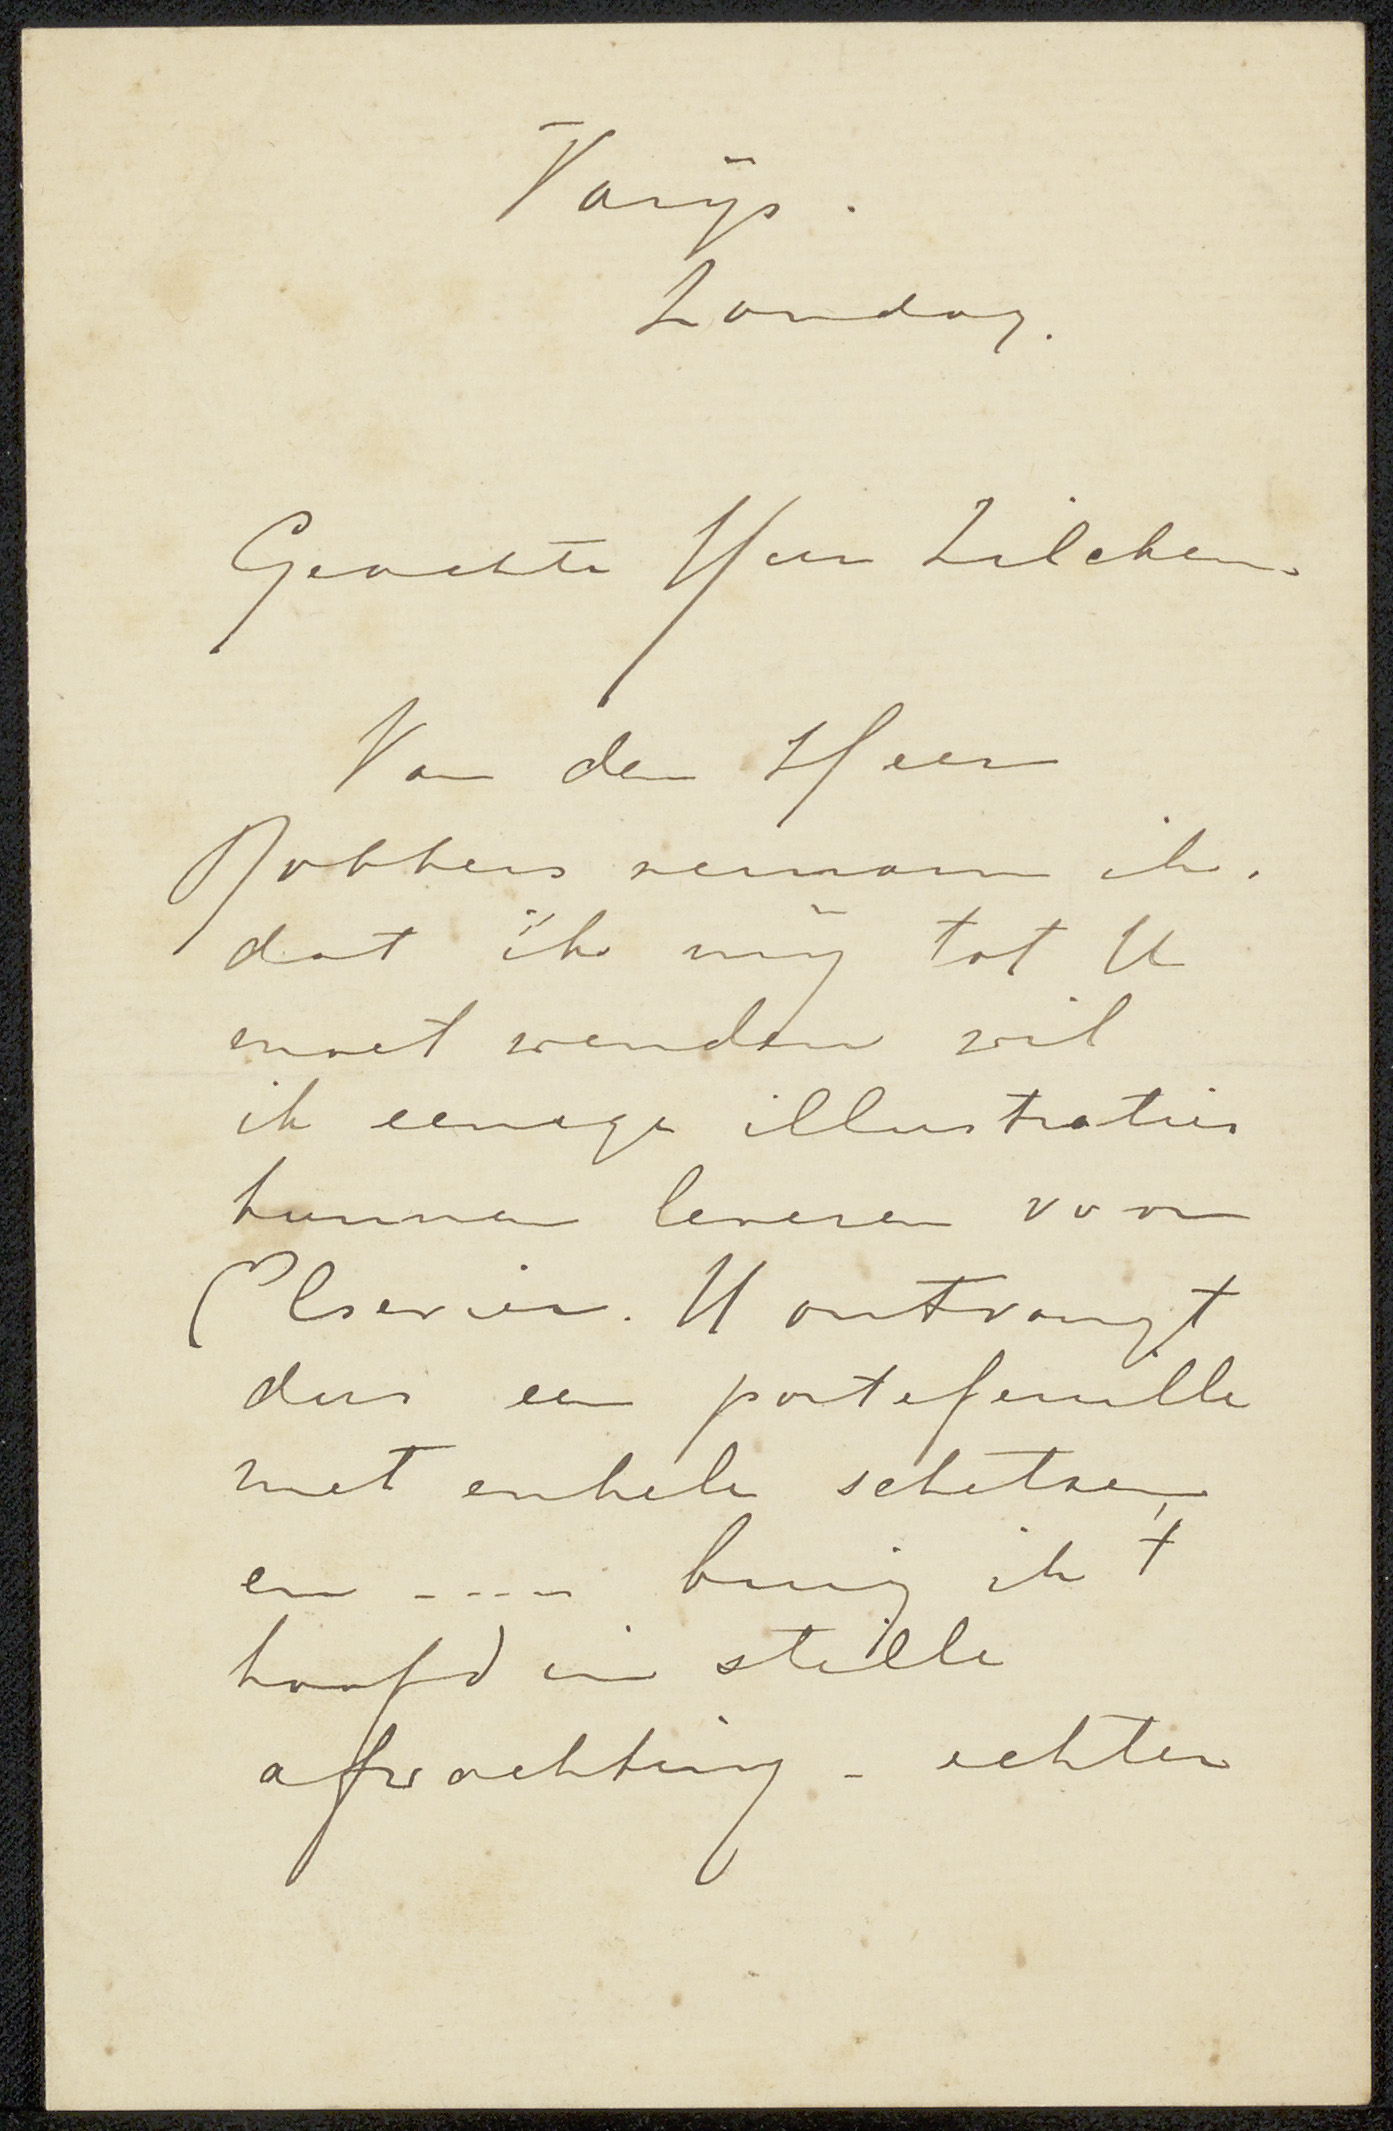 Parijs.
Zondag.
Geachte Heer Zilcken.
Van den Heer
Robbers vernam ik.
dat ik mij tot U
moet wenden wil
ik eenige illustraties
kunnen leveren voor
Elsevier. U ontvangt
dus een portefeuille
met enkele schetsen,
en ---- buig ik 't
hoofd in stille
afwachting - echter